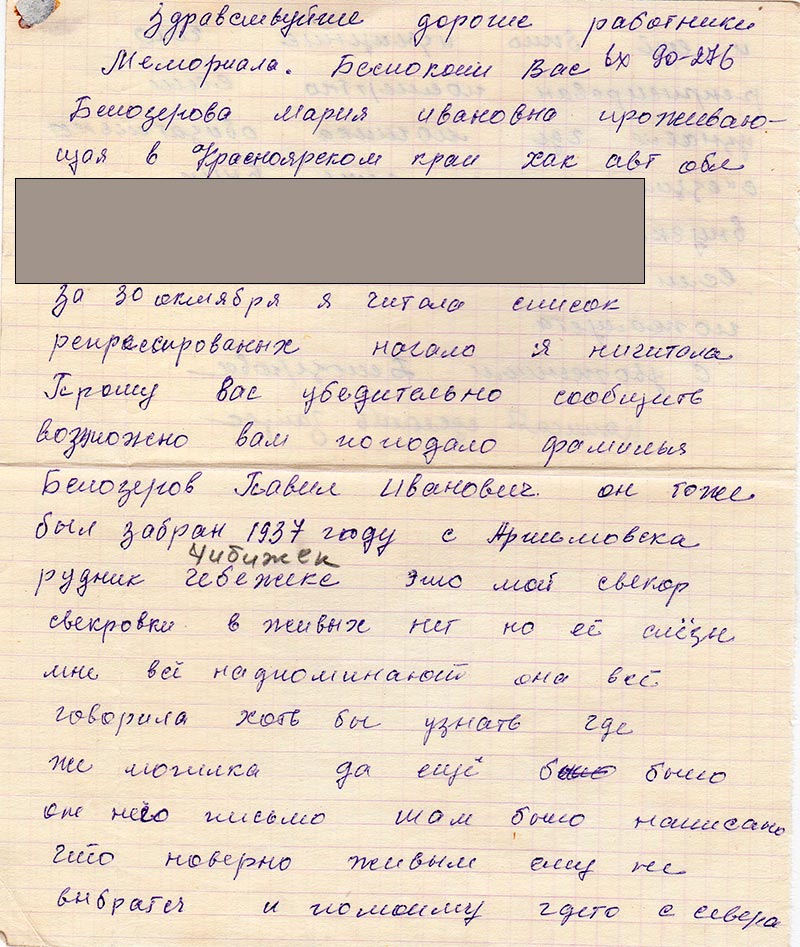 Здравствуйте дорогие работники
Мемориала. Беспокоит Вас Вх 90-276
Белозерова Мария Ивановна проживаю-
щая в Красноярском краи хак авт обл
За 30 октября я читала список
репрессированых начало я ничитала
Прошу вас убедительно сообщить
возможно вам поподало фамилья
Белозеров Павил Иванович. он тоже
был забран 1937 году с Артёмовска
Чибижек
рудник Чебежеке это мой свекор
свекровки в живых нет но её слёзы
мне всё надпоминают она всё
говорила хоть бы узнать где
же могилка да ещё было было
от него письмо там было написано
что наверно живым ему не
выбратся и помоиму гдето с севера